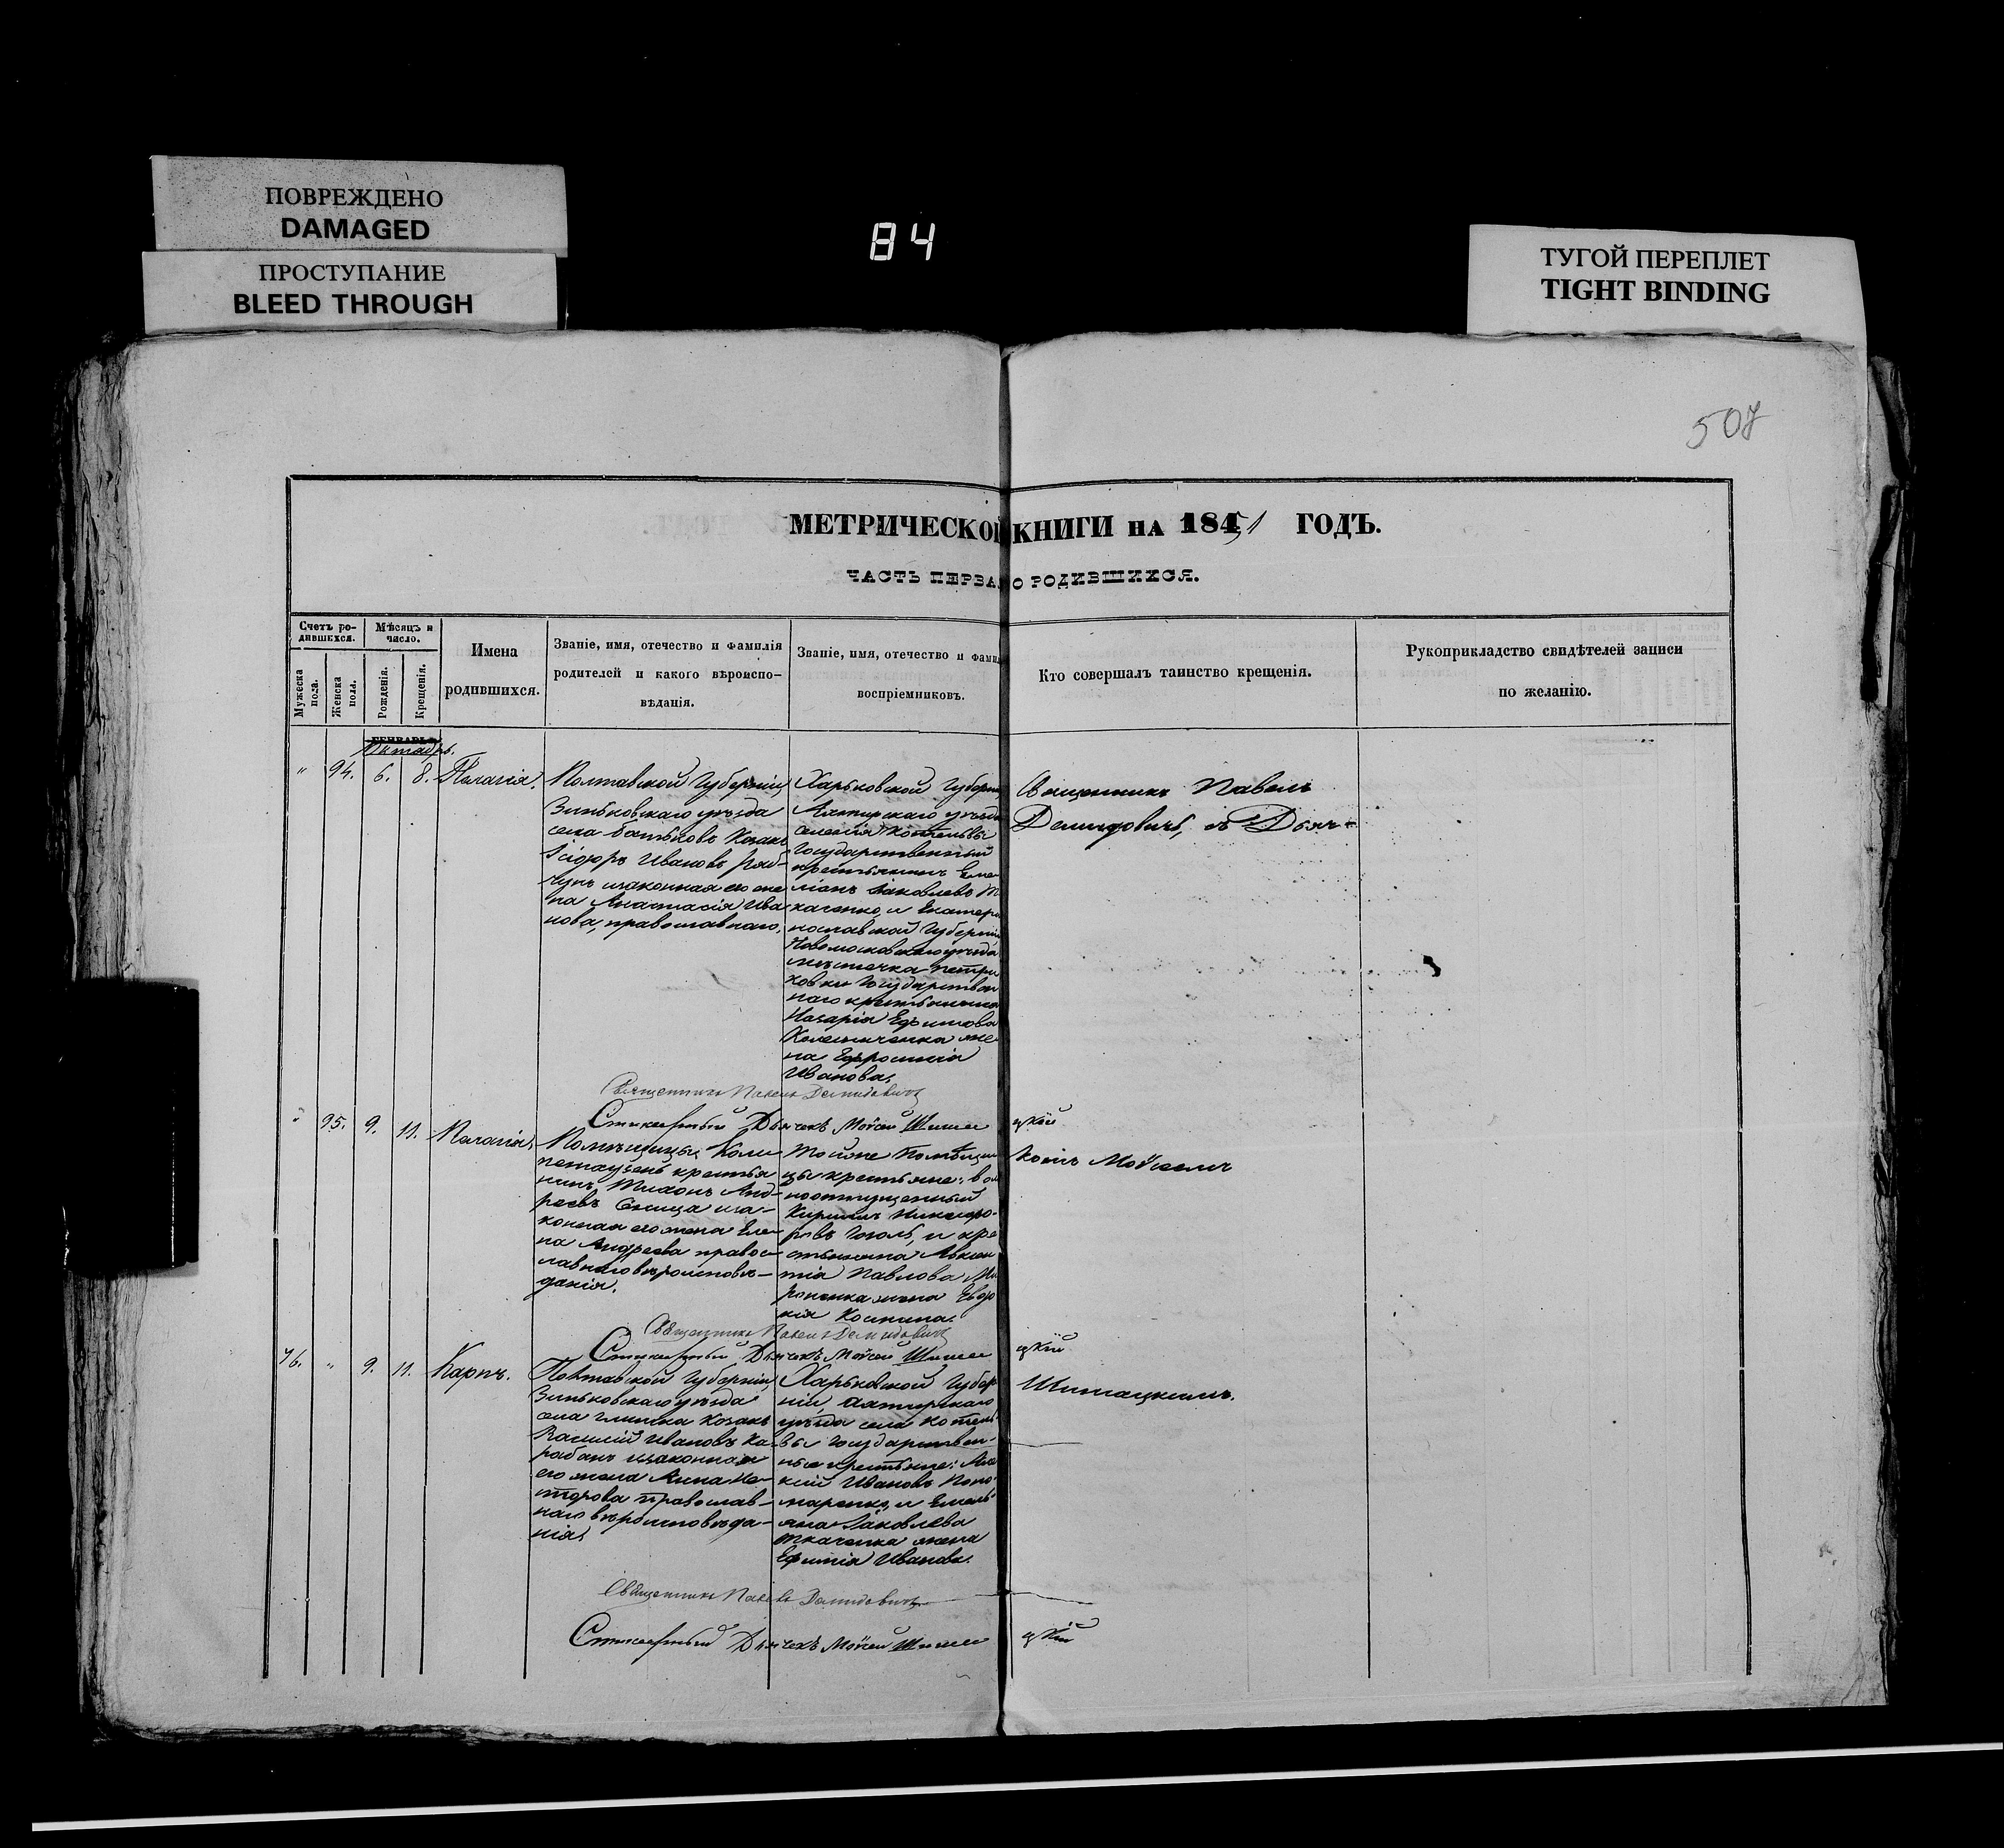 ПОВРЕЖДЕНО
DAMAGED
ПРОСТУПАНИЕ
BLEED THROUGH
84
ТУГОЙ ПЕРЕПЛЕТ
TIGHT BINDING
507
МЕТРИЧЕСКОЙ КНИГИ НА 1851 ГОДЪ.
ЧАСТЬ ПЕРВАЯ О РОДИВШИХСЯ.
Счетъ ро-
дившихся.
Мужеска
пола.
Женска
пола.
Мѣсяцъ и
число.
Рожденія.
Крещенія.
Имена
родившихся.
Званіе, имя, отечество и фамилія
родителей и какого вѣроиспо-
вѣданія.
Званіе, имя, отечество и фами
воспріемниковъ.
Кто совершалъ таинство крещенія.
Рукоприкладство свидѣтелей записи
по желанію.
ГЕНВАРЬ
Октябрь.
" 94. 6. 8. Пелагія.
Полтавской Губерніи
Зиньковскаго уѣзда
села Батьковъ Козакъ
Ісідоръ Ивановъ
чунъ изаконная его же
на Анастасія Ива
нова, православнаго.
Харьковской Губерн
Ахтирскаго уѣзда
селенія Котельвы
Государственный
крестьянинъ Еме
ліанъ Іаковлевъ Т
каченко, и Екатери
нославской Губерніи
Новомосковскаго уѣзда
мѣстечка Петри
ковки Государствен
наго крестьянина
Назарія Ефимова
Колесниченка же
на Ефросинія
Иванова.
Священникъ Павелъ
Демидовичъ, съ Дьяч-
Священникъ Павелъ Демидовичъ
Стихарный Дьячекъ Моѵсей Шима
цкій
" 95. 9. 11. Пелагія.
Помѣщицы
крестья
нинъ Тихонъ Анд-
реевъ Сеница иза-
конная его жена Еле-
на Андреева правос-
лавнаго вѣроисповѣ-
данія.
Той же Помѣщи
цы крестьяне: вол
ноотпущенный
Кириллъ Никифо-
ровъ Гоголь, и кре
стьянина
тія Павлова Ми
роненка жена Евдо
кія Космина.
комъ Моѵсеемъ
Священникъ Павелъ Демидовичъ
Стихарный Дьячекъ Моѵсей Шима
цкій
96. " 9. 11. Карпъ.
Полтавской Губерніи
Зиньковскаго уѣзда
села Глинска Козакъ
Василій Ивановъ Ка-
рабанъ изаконная
его жена Анна Не-
сторова православ-
наго вѣроисповѣда-
нія.
Харьковской Губер
ніи, Ахтирскаго
уѣзда села Котель
вы Государствен-
ные крестьяне: Але
ксій Ивановъ Поно-
маренко, и Емель
яна Іаковлева
Ткаченка жена
Ефимія Иванова.
Шимацкимъ.
Священникъ Павелъ Демидовичъ
Стихарный Дьячекъ Моѵсей Шима
цкій